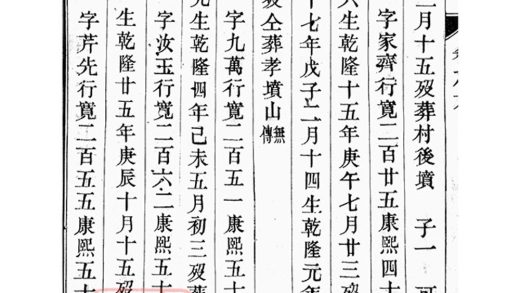 二月十五殁葬村後墳　子一　可
字家齊行寬二百廿五康熙四十
六生乾隆十五年庚午七月廿三殁
十七年戊子二月十四生乾隆元年
殁仝葬孝墳山無傳
字九萬行寬二百五一康熙五十
先生乾隆四年己未五月初三殁葬
字汝玉行寬二百六二康熙五十
生乾隆廿五年庚辰十月十五殁
字芹先行寬二百五五康熙五十